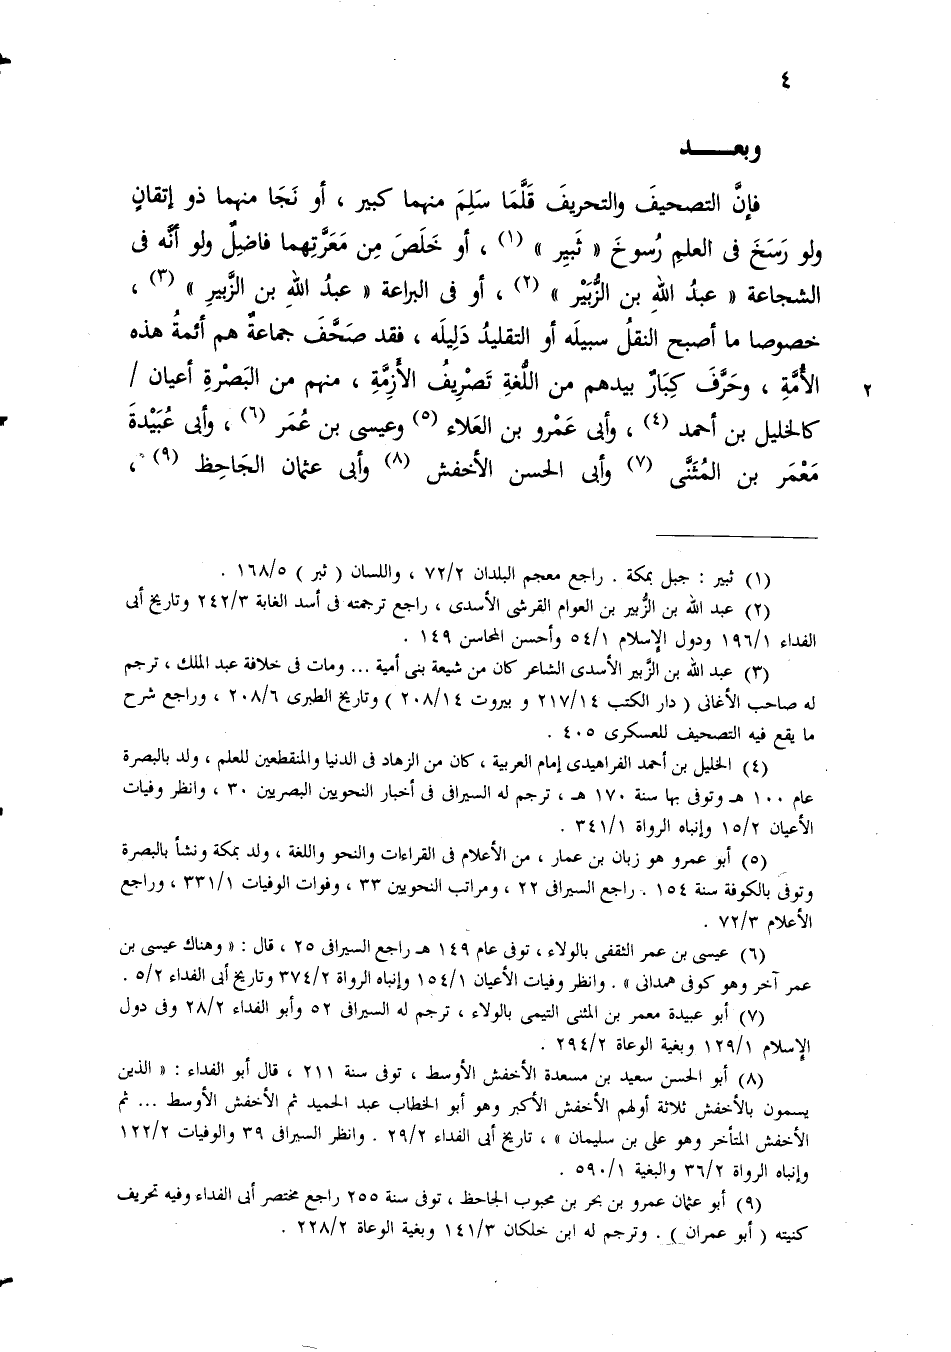 ٤
وبعـــــد
فإنَّ التصحيفَ والتحريفَ قَلَّمَا سَلِمَ منهما كبير ، أو نَجَا منهما ذو إتقانٍ
ولو رَسَخَ فى العلمِ رُسوخَ « ثَبِيرِ » (١) ، أو خَلَصَ مِن مَعَرَّتِهما فاضِلٌ ولو أنَّه فى
الشجاعة « عبدُ اللهِ بن الزُّبَيْر » (٢) ، أو فى البراعة « عبدُ اللهِ بن الزَّبيرِ » (٣) ،
خصوصا ما أصبح النقلُ سبيلَه أو التقليدُ دَلِيلَه ، فقد صَحَّفَ جماعةٌ هم أئمةُ هذه
الأُمَّةِ ، وحَرَّفَ كِبَارٌ بيدهم من اللُّغةِ تَصْرِيفُ الأَزِمَّةِ ، منهم من البَصْرةِ أعيان / ٢
كالخليل بن أحمد (٤) ، وأبى عَمْرو بن العَلاء (٥) وعيسى بن عُمَر (٦) ، وأبى عُبَيْدةَ
مَعْمَر بن المُثَنَّى (٧) وأبى الحسن الأخفش (٨) وأبى عثمان الجَاحِظ (٩) ،
(١) ثبير : جبل بمكة . راجع معجم البلدان ٧٢/٢ ، واللسان ( ثبر ) ١٦٨/٥ .
(٢) عبد الله بن الزُّبير بن العوام القرشى الأسدى ، راجع ترجمته فى أسد الغابة ٢٤٢/٣ وتاريخ أبى
الفداء ١٩٦/١ ودول الإسلام ٥٤/١ وأحسن المحاسن ١٤٩ .
(٣) عبد الله بن الزَّبير الأسدى الشاعر كان من شيعة بنى أمية ... ومات فى خلافة عبد الملك ، ترجم
له صاحب الأغانى ( دار الكتب ٢١٧/١٤ و بيروت ٢٠٨/١٤ ) وتاريخ الطبرى ٢٠٨/٦ ، وراجع شرح
ما يقع فيه التصحيف للعسكرى ٤٠٥ .
(٤) الخليل بن أحمد الفراهيدى إمام العربية ، كان من الزهاد فى الدنيا والمنقطعين للعلم ، ولد بالبصرة
عام ١٠٠ هـ وتوفى بها سنة ١٧٠ هـ ، ترجم له السيرافى فى أخبار النحويين البصريين ٣٠ ، وانظر وفيات
الأعيان ١٥/٢ وإنباه الرواة ٣٤١/١ .
(٥) أبو عمرو هو زبان بن عمار ، من الأعلام فى القراءات والنحو واللغة ، ولد بمكة ونشأ بالبصرة
وتوفى بالكوفة سنة ١٥٤ . راجع السيرافى ٢٢ ، ومراتب النحويين ٣٣ ، وفوات الوفيات ٣٣١/١ ، وراجع
الأعلام ٧٢/٣ .
(٦) عيسى بن عمر الثقفى بالولاء ، توفى عام ١٤٩ هـ راجع السيرافى ٢٥ ، قال : « وهناك عيسى بن
عمر آخر وهو كوفى همدانى » . وانظر وفيات الأعيان ١٥٤/١ وإنباه الرواة ٣٧٤/٢ وتاريخ أبى الفداء ٥/٢ .
(٧) أبو عبيدة معمر بن المثنى التيمى بالولاء ، ترجم له السيرافى ٥٢ وأبو الفداء ٢٨/٢ وفى دول
الإسلام ١٢٩/١ وبغية الوعاة ٢٩٤/٢ .
(٨) أبو الحسن سعيد بن مسعدة الأخفش الأوسط ، توفى سنة ٢١١ ، قال أبو الفداء : « الذين
يسمون بالأخفش ثلاثة أولهم الأخفش الأكبر وهو أبو الخطاب عبد الحميد ثم الأخفش الأوسط ... ثم
الأخفش المتأخر وهو على بن سليمان » ، تاريخ أبى الفداء ٢٩/٢ . وانظر السيرافى ٣٩ والوفيات ١٢٢/٢
وإنباه الرواة ٣٦/٢ والبغية ٥٩٠/١ .
(٩) أبو عثمان عمرو بن بحر بن محبوب الجاحظ ، توفى سنة ٢٥٥ راجع مختصر أبى الفداء وفيه تحريف
كنيته ( أبو عمران ) . وترجم له ابن خلكان ١٤١/٣ وبغية الوعاة ٢٢٨/٢ .